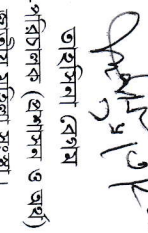 তাহসিনা বেগম
পরিচালক (প্রশাসন ও অর্থ)
জাতীয় মহিলা সংস্থা।